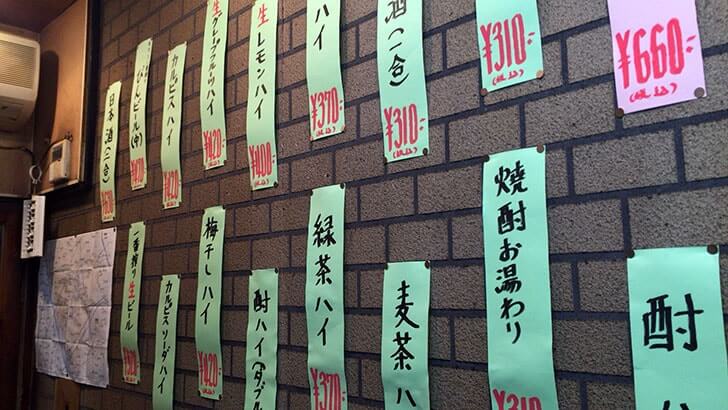 日本酒(二合)
びんビール(中)
カルピスハイ
¥420-
(税込)
生グレープフルーツハイ
¥420-
(税込)
生レモンハイ
¥400-
(税込)
ハイ
¥370-
(税込)
酒(一合)
¥310-
(税込)
¥310-
(税込)
¥660-
(税込)
一番搾り生ビール
カルピスソーダハイ
梅干しハイ
¥420-
(税込)
酎ハイ(ダブル
緑茶ハイ
¥370-
麦茶ハ
焼酎お湯わり
¥310
酎